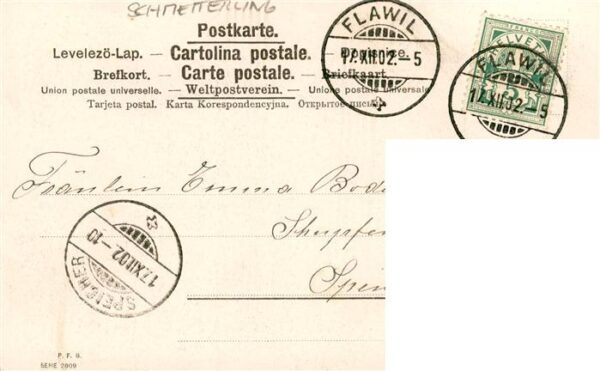 SCHMETTERLING
Postkarte.
Levelezö-Lap. — Cartolina postale. — Dopisnice.
Brefkort. — Carte postale. — Briefkaart.
Union postale universelle. — Weltpostverein. — Unione postale universale
Tarjeta postal. Karta Korespondencyjna. Открытое письмо.
FLAWIL
17.XII.02.-5
HELVETIA
FLAWIL
17.XII.02.-5
Fräulein Emma
SPEICHER
17.XII.02.-10
P. F. G.
SERIE 2009